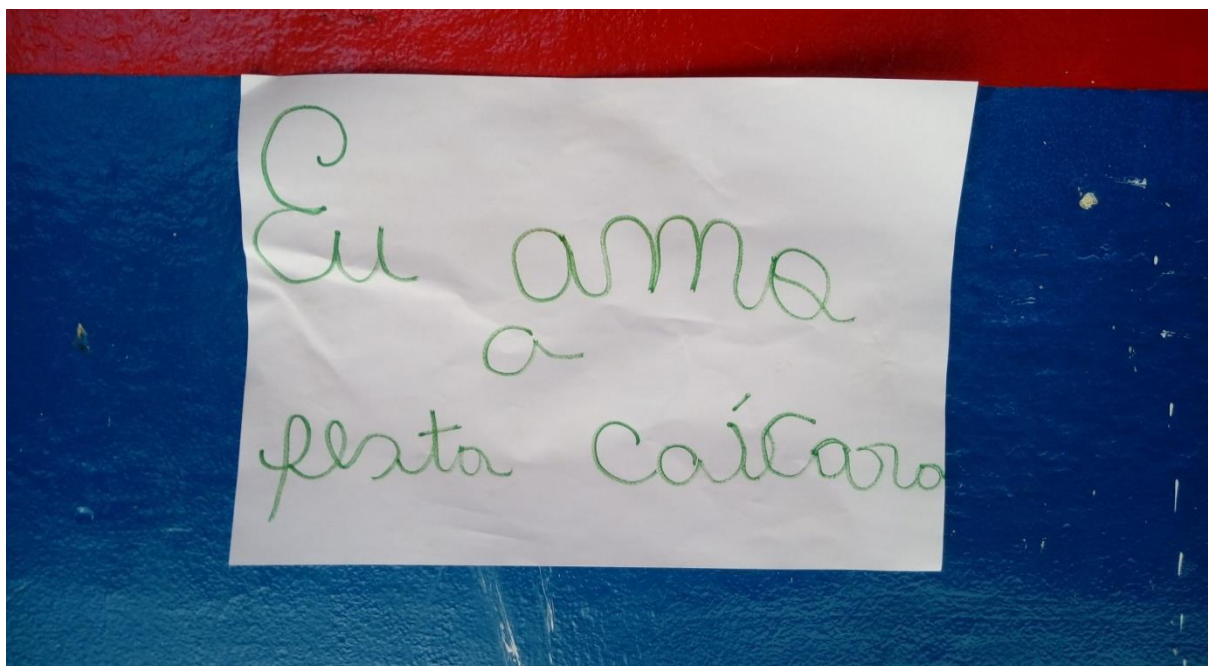 Eu ama
a
festa caícara